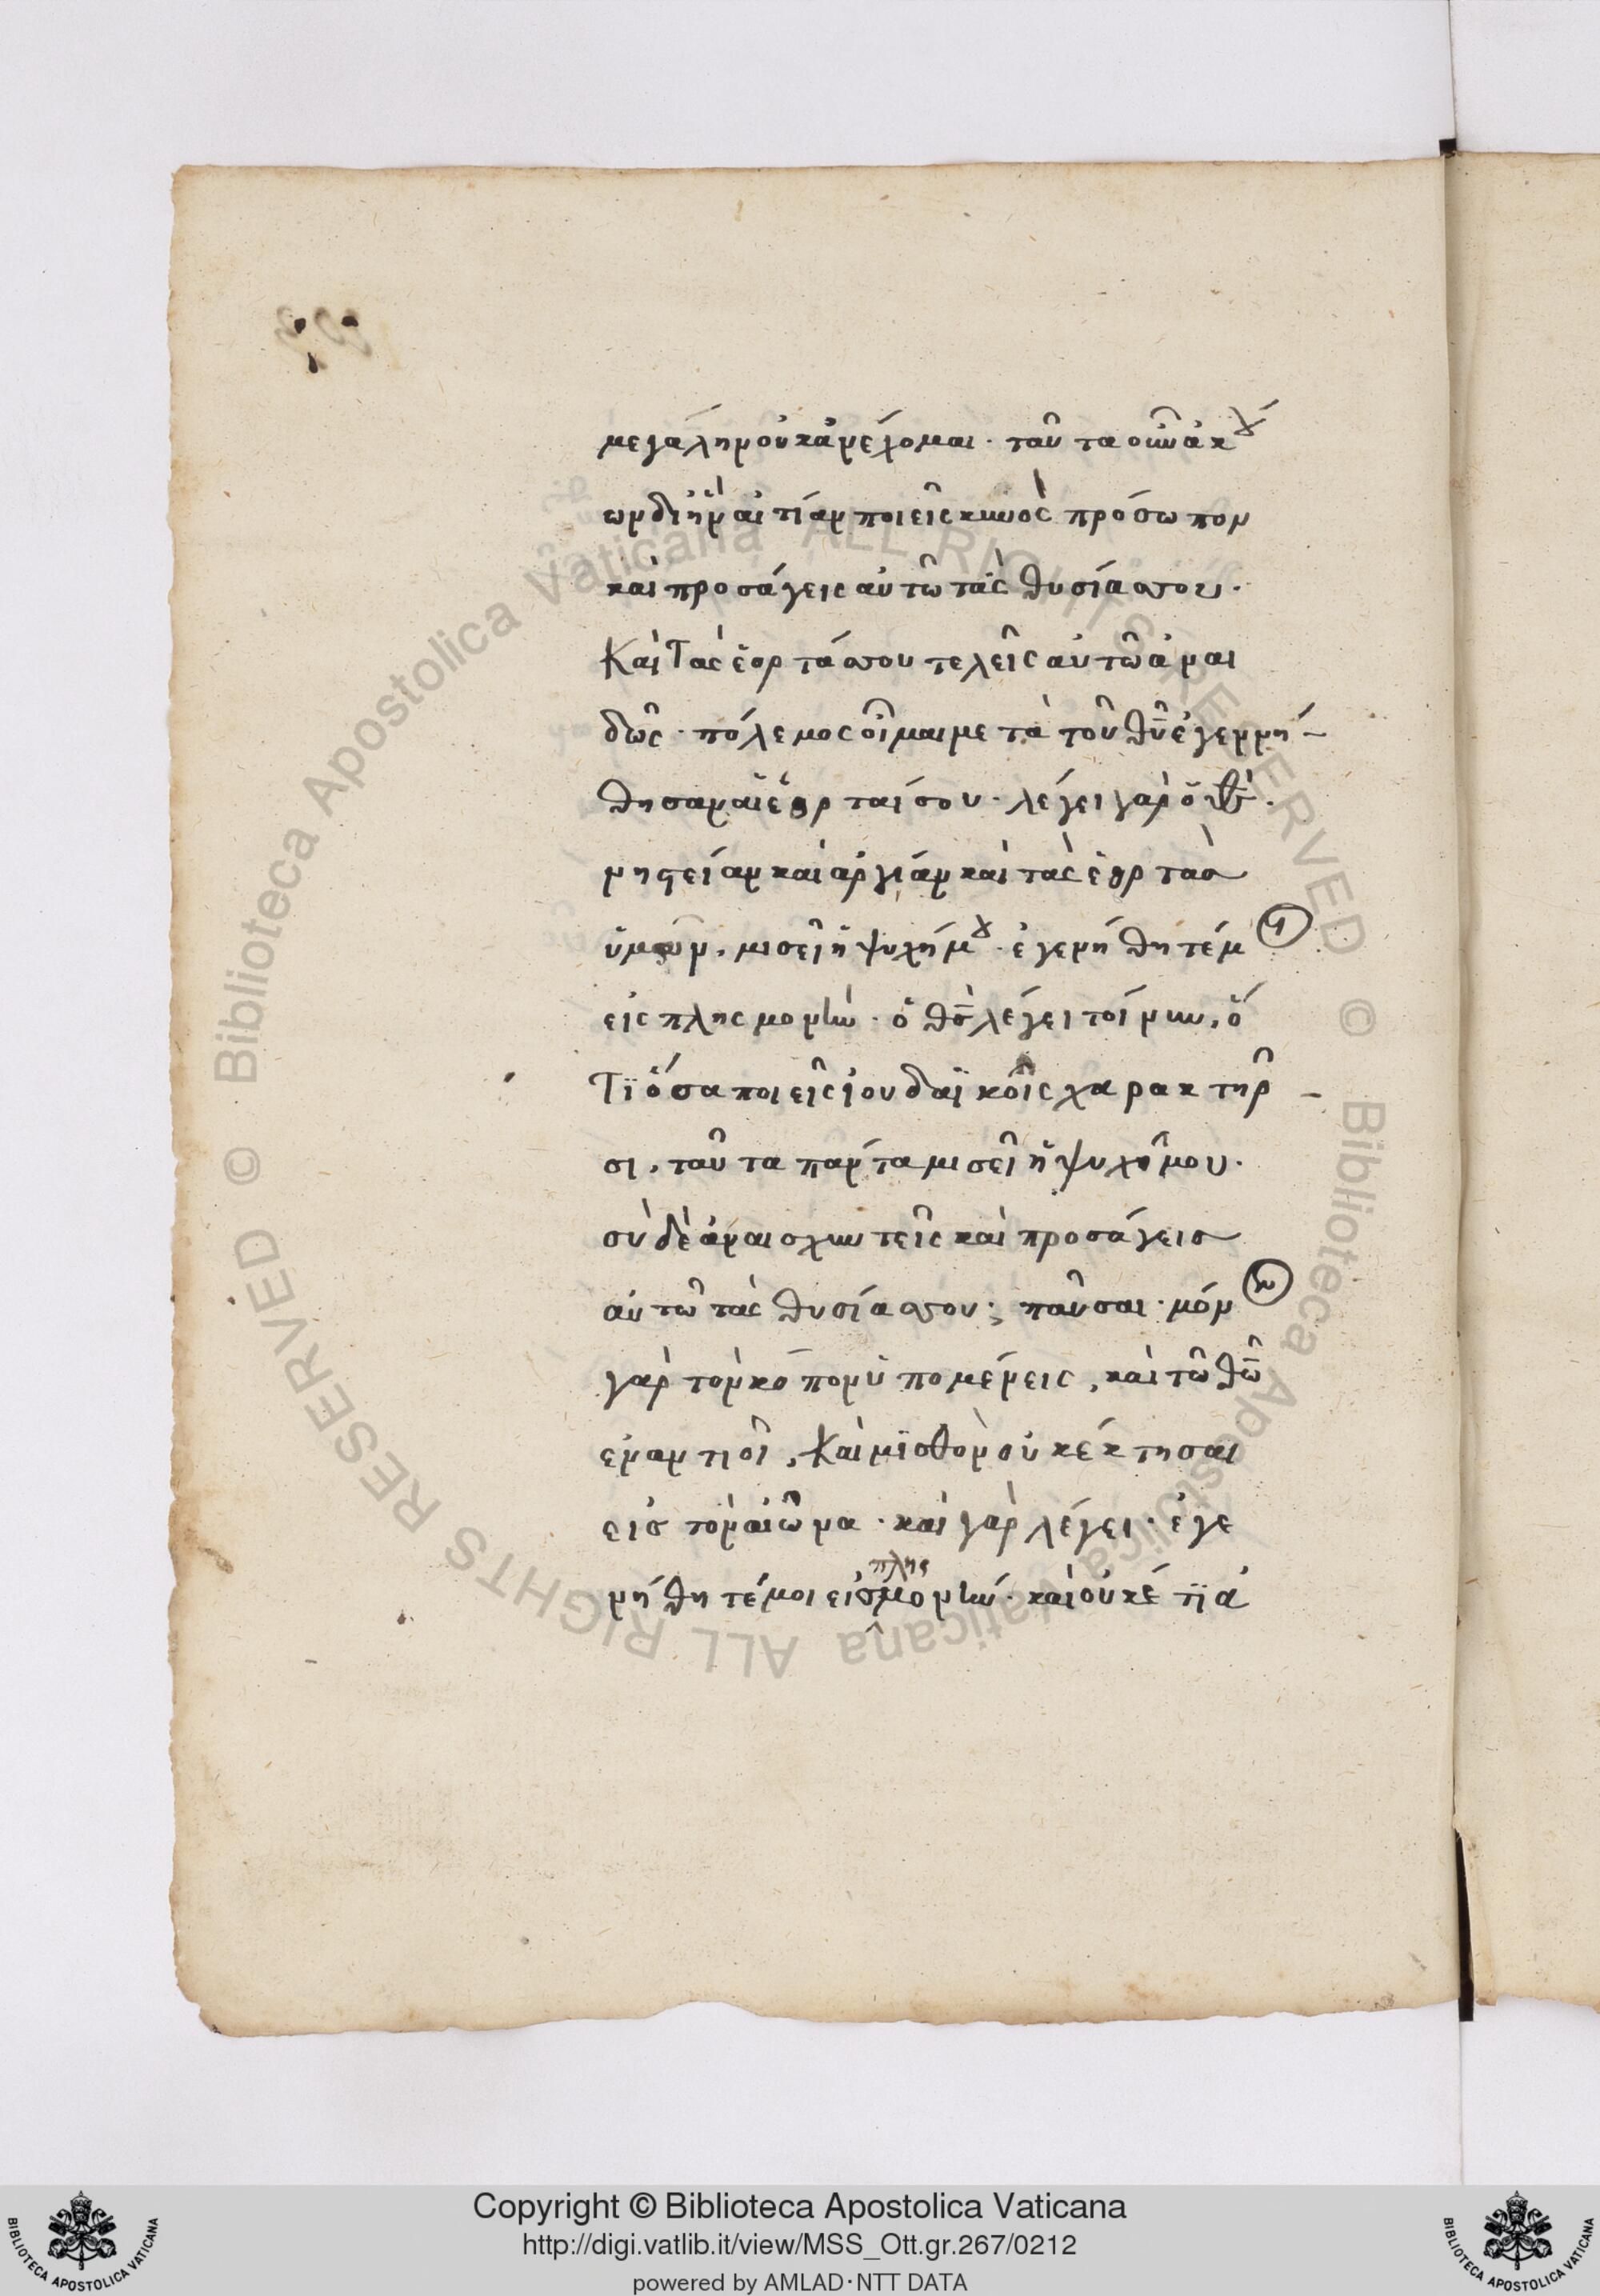 μεγάλην οὐκ ἀνέχομαι· ταῦτα οὖν ἀκού
ων δι' ἣν αἰτίαν ποιεῖς κυνὸς πρόσωπον
καὶ προσάγεις αὐτῶ τὰς θυσίας σου.
Καὶ Τὰς ἑορτάς σου τελεῖς αὐτῶ ἀναι
δῶς· πόλεμος οἶμαι μετὰ τοῦ θῦ ἐγεννή-
θησαν αἱ ἑορταί σου· λέγει γὰρ ὁ θς.
νηστείαν καὶ ἀργίαν καὶ τὰς ἑορτὰς
ὑμῶν, μισεῖ ἡ ψυχή μου· ἐγενήθητέ μοι
εἰς πλησμονὴν· ὁ θς λέγει τοίνυν, ὅ
Τϊ ὅσα ποιεῖς ἰουδαϊκοῖς χαρακτῆρ-
σι, ταῦτα πάντα μισεῖ ἡ ψυχῆ μου.
σὺ δὲ ἀναισχυντεῖς καὶ προσάγεις
αὐτῶ τὰς θυσίας σου; παῦσαι· μόνον
γὰρ τὸν κόπον ὑπομένεις, καὶ τῶ θῶ
εναντιοῖ, Καὶ μϊσθὸν οὐ κέκτησαι
εἰς τὸν αἰῶνα· καὶ γὰρ λέγει· ἐγε
νήθητέ μοι εἰς πλησμονήν· καὶ οὐκέτϊ ἀ
Copyright © Biblioteca Apostolica Vaticana
http://digi.vatlib.it/view/MSS_Ott.gr.267/0212
powered by AMLAD·NTT DATA